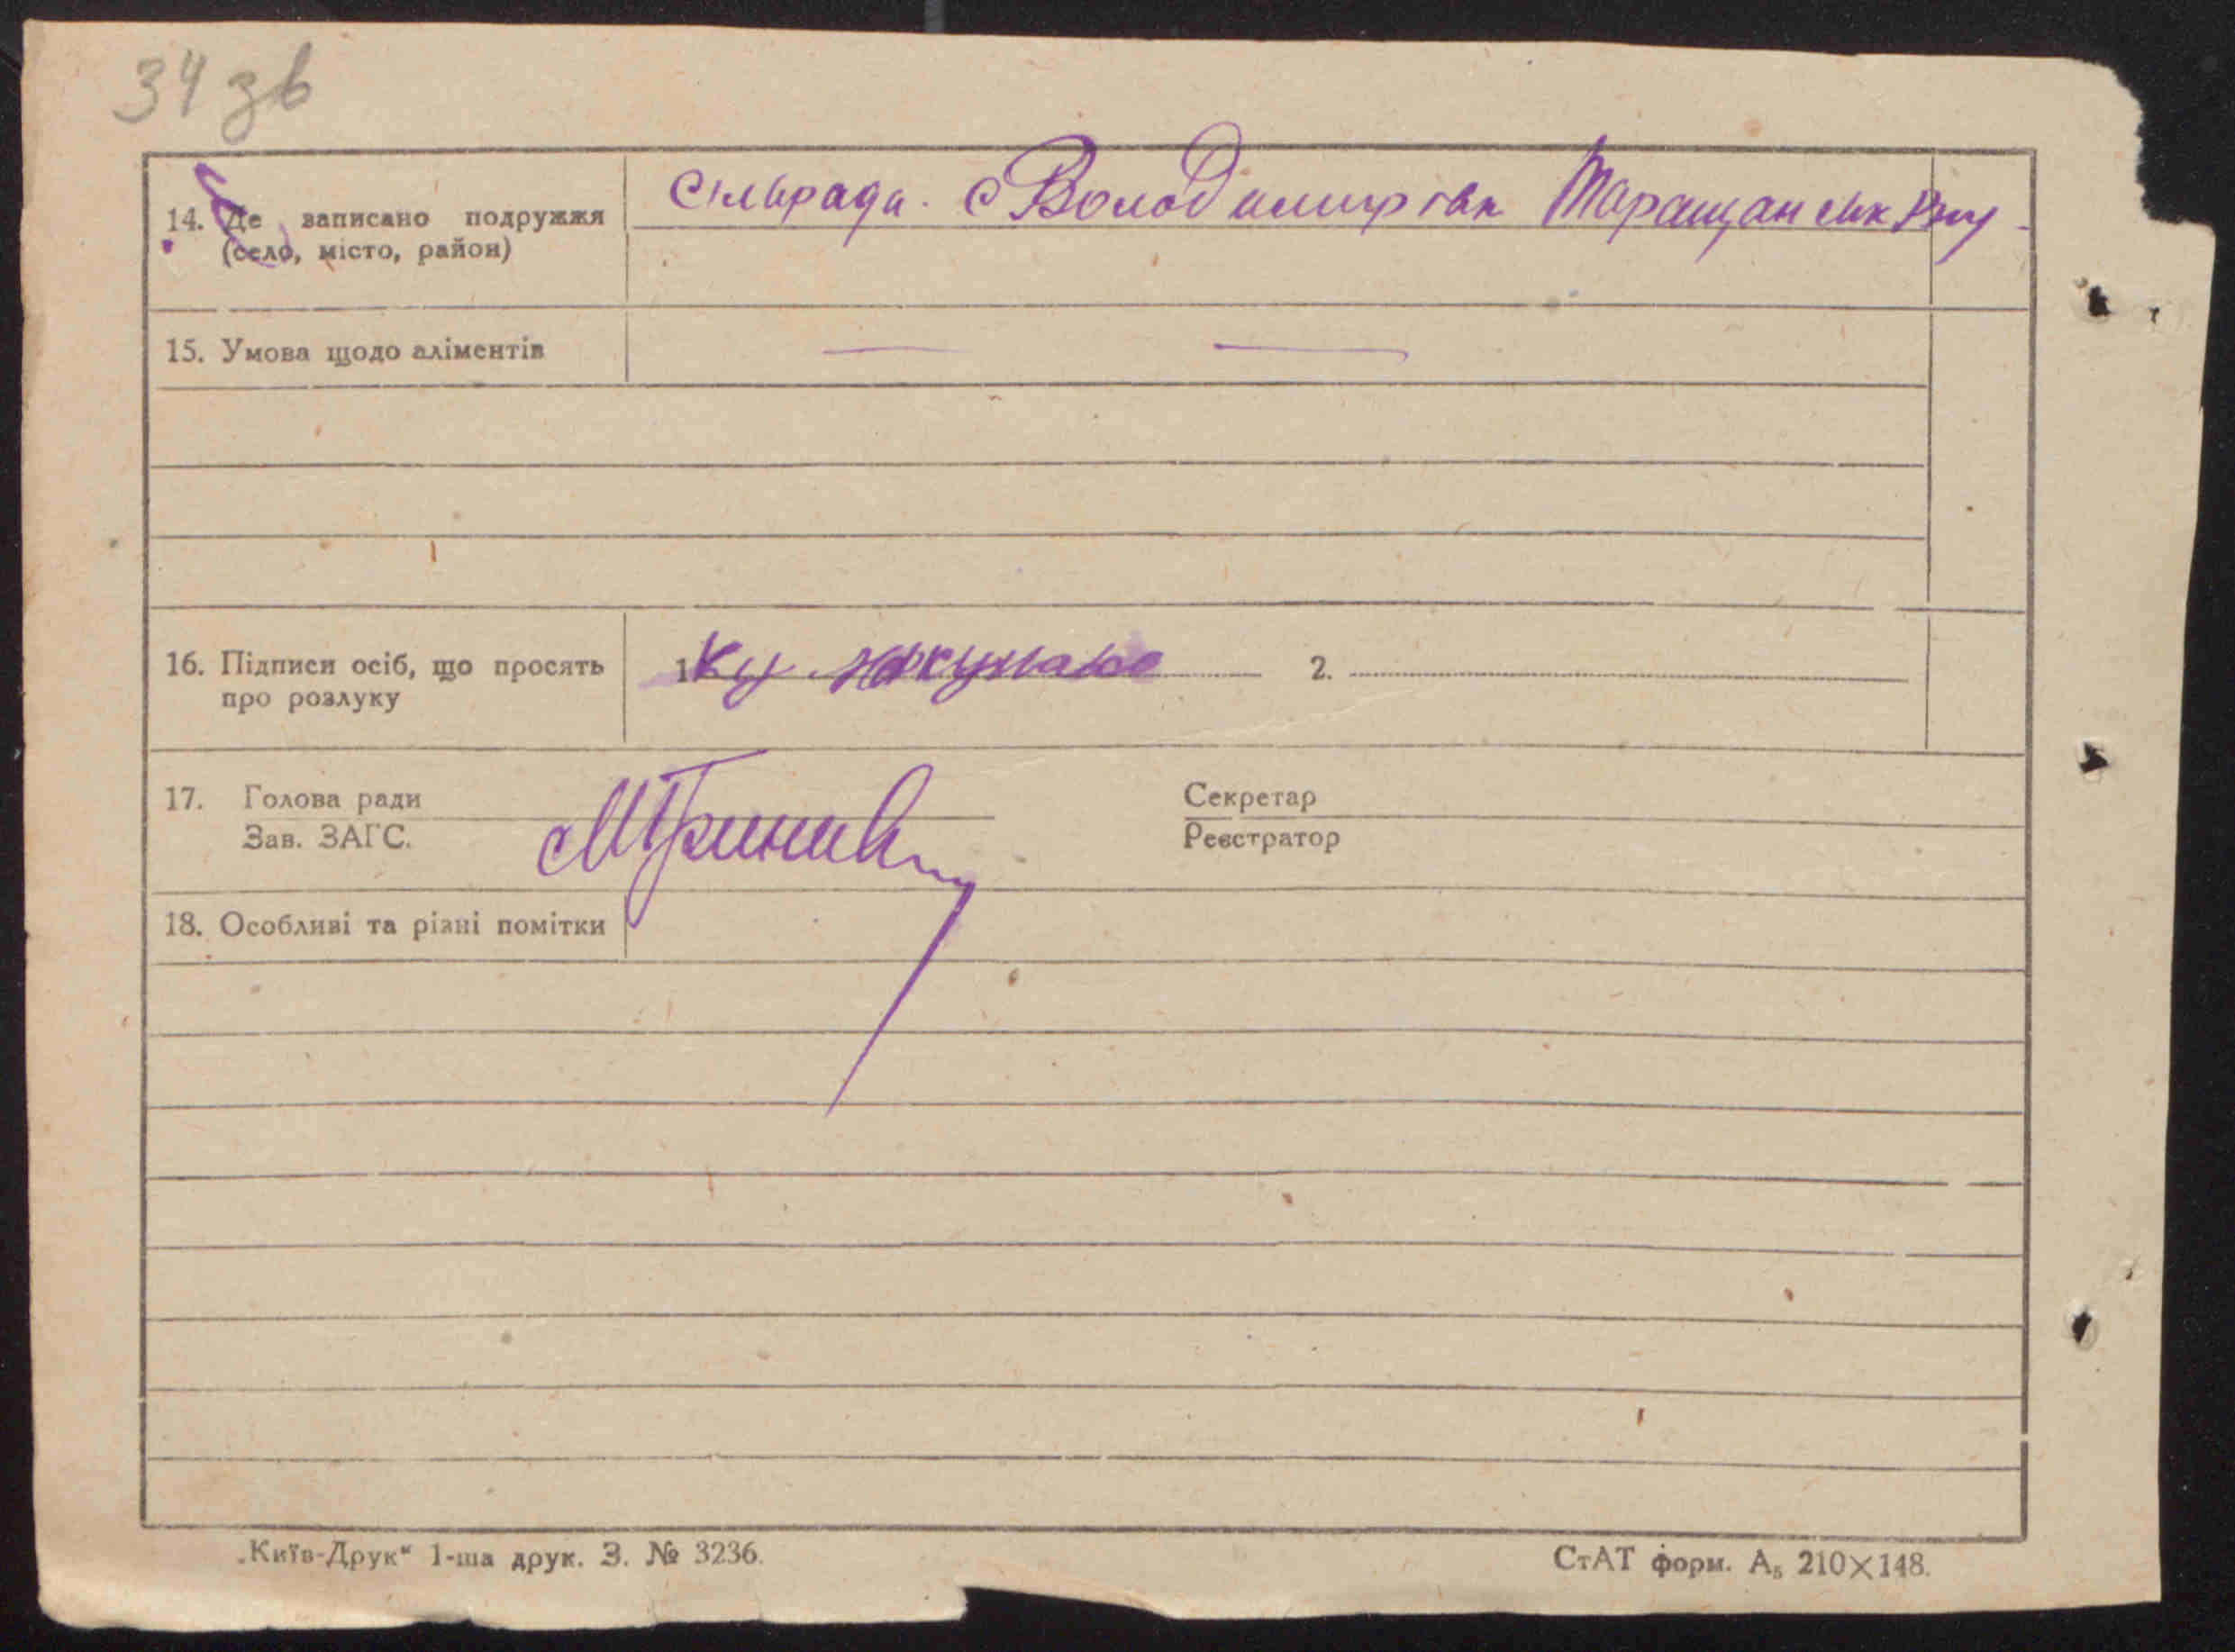 34 зв
14. Де записано подружжя
(село, місто, район)
Сільрада. с Володимирівк Таращанськ
15. Умова щодо аліментів
16. Підписи осіб, що просять
про розлуку
1. 2.
17. Голова ради
Зав. ЗАГС.
Секретар
Реєстратор
18. Особливі та різні помітки
„Київ-Друк“ 1-ша друк. З. № 3236.
СтАТ форм. А₅ 210×148.